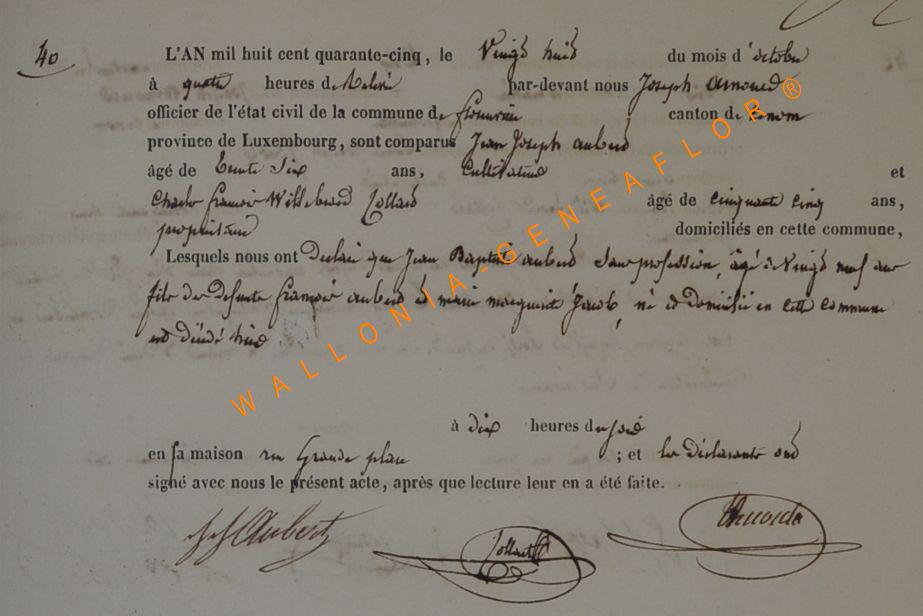 40
L'AN mil huit cent quarante-cinq, le Vingt huit du mois d'octobre
à quatre heures de Relevé par-devant nous Joseph Arnould
officier de l'état civil de la commune de florenville canton de
province de Luxembourg, sont comparus Jean Joseph aubert
âgé de trente six ans, Cultivateur et
Charles françois Willebrord Collard âgé de cinquante cinq ans,
propriétaire domiciliés en cette commune,
Lesquels nous ont Déclaré que Jean Baptiste aubert Sans profession, âgé de Vingt neuf ans
fils de defunts françois aubert et marie margueritte Jacob, né et domicilié en cette Commune
est décédé hier
à dix heures du soir
en sa maison rue Grande place ; et les déclarants ont
signé avec nous le présent acte, après que lecture leur en a été faite.
JJ Aubert Collard
WALLONIA-GENEAFLOR®